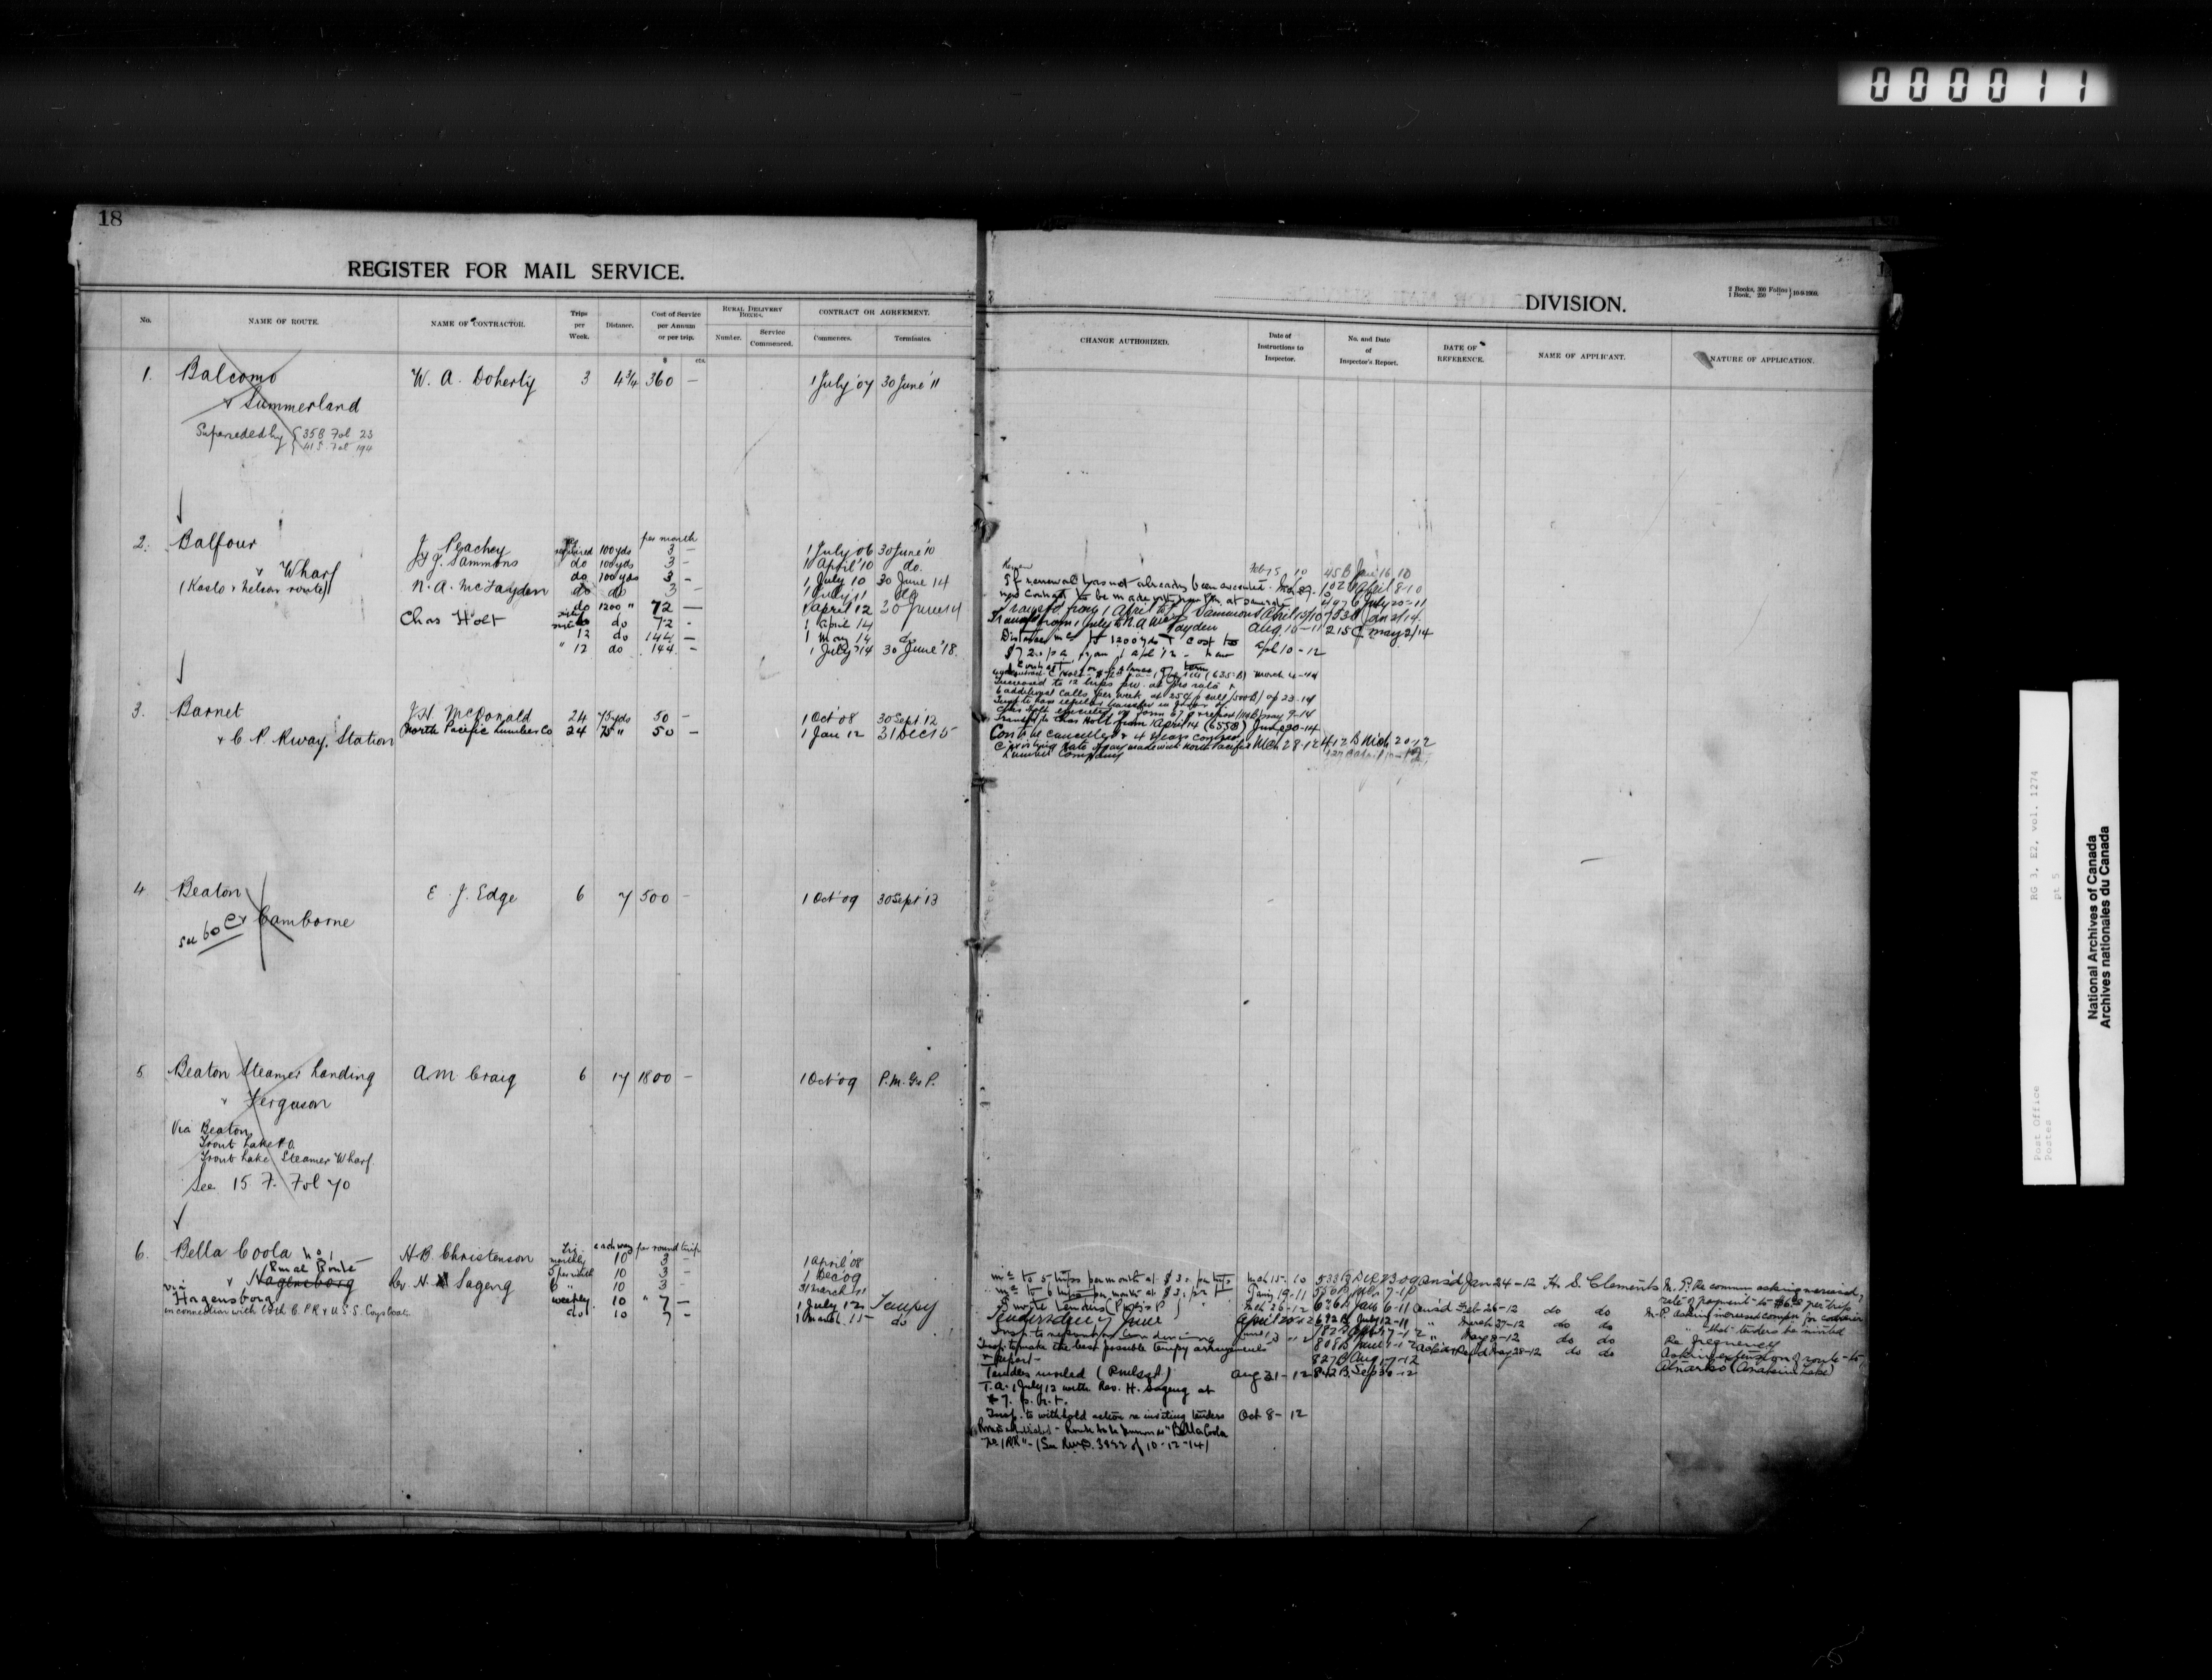 000011
18
REGISTER FOR MAIL SERVICE.
No.
NAME OF ROUTE.
NAME OF CONTRACTOR.
Trips per Week.
Distance.
Cost of Service per Annum or per trip.
RURAL DELIVERY BOXES.
Number.
Service Commenced.
CONTRACT OR AGREEMENT.
Commences.
Terminates.
$ cts.
1. Balcomo W. A. Doherty 3 4 3/4 360 — 1 July '07 30 June '11
& Summerland
Superseded by { 35 B Fol 23
41 S. Fol 194
2. Balfour J. Peachey required 100 yds per month 3 — 1 July 06 30 June '10
& Wharf J. Sammons do 100 yds 3 — 1 April '10 do.
do 100 yds 3 — 1 July 10 30 June 14
(Kaslo & Nelson route) N. A. McFayden do do 3 — 1 July 11 do
do 1200 " 72 — 1 April 12 30 June 14
Chas Holt do 72 - 1 April 14
12 do 144 — 1 May 14 do
" 12 do 144 — 1 July '14 30 June '18.
3. Barnet J. H. McDonald 24 75 yds 50 — 1 Oct '08 30 Sept '12
& C. P. Rway. Station North Pacific Lumber Co 24 75 " 50 — 1 Jan 12 31 Dec 15
4. Beaton E. J. Edge 6 7 500 — 1 Oct '09 30 Sept '13
& Camborne
see 60 C
5. Beaton Steamer Landing A. M. Craig 6 17 1800 — 1 Oct '09 P. M. G's P.
& Ferguson
Via Beaton
Trout Lake P.O.
Trout Lake Steamer Wharf.
See 15 F. Fol 70
6. Bella Coola No 1 H. B. Christenson monthly 10 each way per round trip 3 — 1 April '08
Rural Route 10 3 — 1 Dec 09
via & Hagensborg Rev. H. Sageng 6 " 10 3 — 31 March 11
Hagensborg weekly 10 " 7 — 1 July 12 Tempy
in connection with both C. P. R & U. S. S. Coys boats. do 10 7 — 1 March 15 do
DIVISION.
2 Books, 300 Folios
1 Book, 250 "
} 10-9-1909.
CHANGE AUTHORIZED.
Date of Instructions to Inspector.
No. and Date of Inspector's Report.
DATE OF REFERENCE.
NAME OF APPLICANT.
NATURE OF APPLICATION.
Renew Feb 15, 10 45 B Jan 16 10
If renewal has not already been executed
new contract to be made with 102 B April 8-10
Transfd from 1 April to J. Sammons April 15/10 753 B Jan 2/14
Transf from 1 July to N. A. McFayden Aug 16-11 215 C May 2/14
Distance incd to 1200 yds & cost to
$72.00 p a from 1 Apl 12 - new Apl 10-12
March 4-14
Increased to 12 trips per w. at pro rata &
6 additional calls per week at 25¢ p call (500 B) Ap 23-14
May 9-14
Transf to Chas Holt from 1 April 14 (655 B) June 30-14
Con to be cancelled & 4 years contract
existing rate of pay made with North Pacific Mch 28-12 412 B Mch 20-12
Lumber Company
incd to 5 trips per month at $3. per trip Mch 15-10 533 B Dec 23 09 ans'd Jan 24-12 H. S. Clements M. P. Re commun asking increased
rate of payment to $6.00 per trip
incd to 6 trips per month at $3. per trip
Feb 26-12 do do M-P. asking increased compn for carrier
Invite tenders Mch 26-12 March 27-12 do do " that tenders be invited
Tenders due 7 June April 20-12 692 B July 12-11 " May 8-12 do do Re frequency
May 28-12 do do Asking extension of route to
Atnarko (Anahim Lake)
Insp. to make the best possible tempy arrangements
& report— 827 B Aug 17-12
Tenders invited Aug 21-12 842 B. Sep 30-12
T. A. 1 July 12 with Rev. H. Sageng at
$7. p. r. t.
Insp. to withhold action re inviting tenders Oct 8-12
Route to be known as "Bella Coola
No. 1 RR" - (See Rwp. 3892 of 10-12-14)
RG 3, E2, vol. 1274
pt 5
Post Office
Postes
National Archives of Canada
Archives nationales du Canada